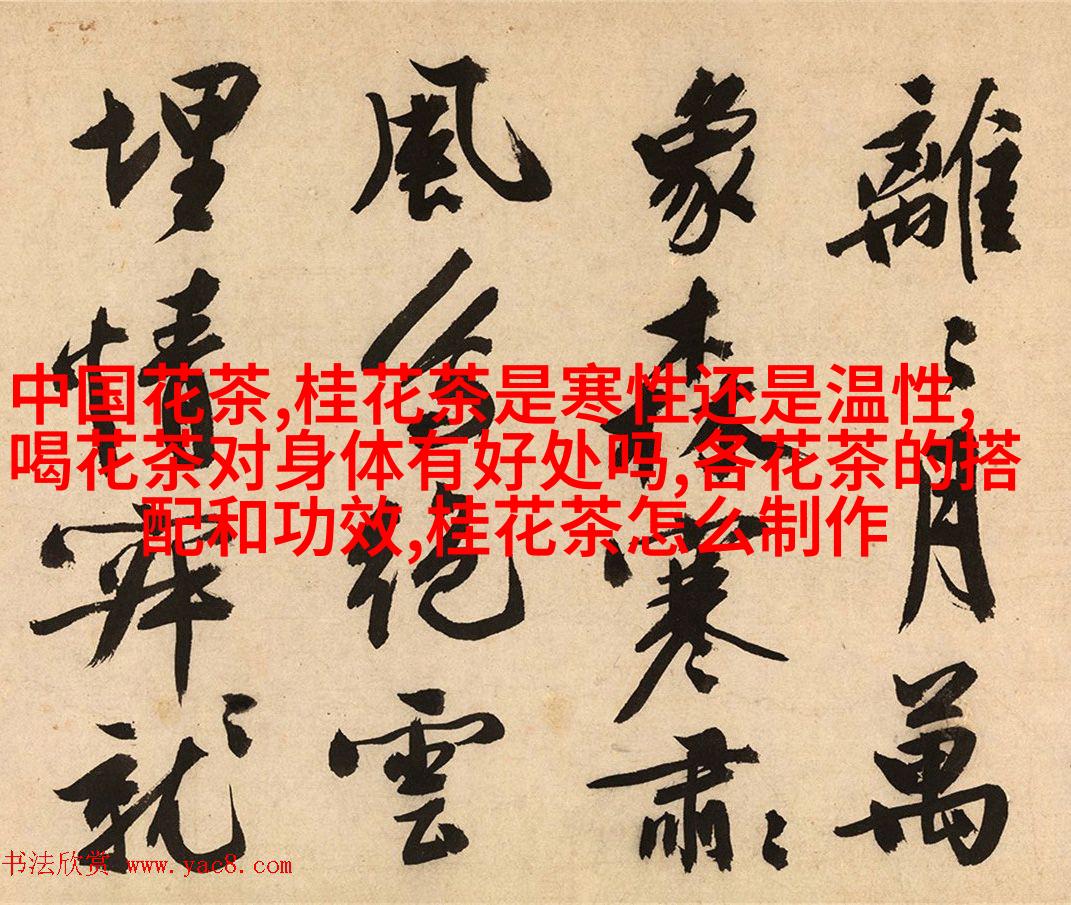 離〻月萬
象森寒肅〻
風雲
埋情就〻
中国花茶,桂花茶是寒性还是温性,
喝花茶对身体有好处吗,各花茶的搭
配和功效,桂花茶怎么制作
书法欣赏 www.yac8.com